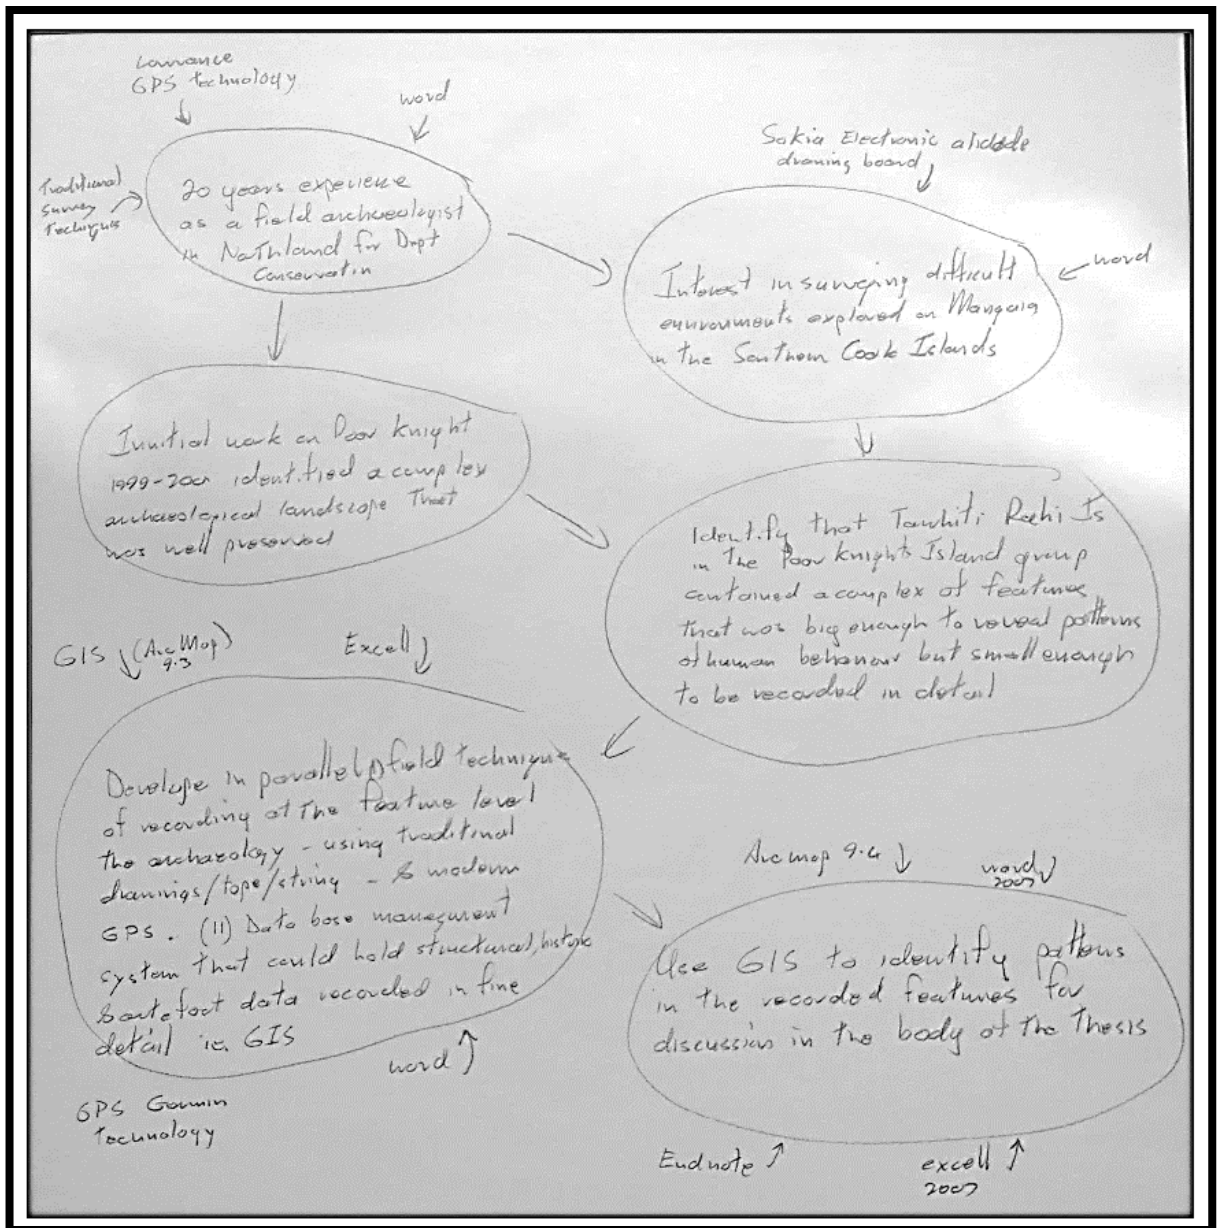 Lowrance
GPS technology
word
Traditional
Survey
Techiques
20 years experience
as a field archaeologist
in Nothland for Dept
Conservatin
Sokia Electronic alidade
drawing board
word
Interest in surveying difficult
environments explored on Mangaia
in the Southern Cook Islands
Innitial work on Poor Knight
1999-2001 identified a complex
archaeological landscape that
was well preserved
Identify that Tawhiti Rahi Is
in the Poor Knights Island group
contained a complex of features
that was big enough to reveal patterns
of human behaviour but small enough
to be recorded in detail
GIS (ArcMap)
9.3
Excell
Develope in parallel (i) field technique
of recording at the feature level
the archaeology - using traditinal
drawings/tape/string - & modern
GPS. (II) Data base managment
system that could hold structured, historic
& artefact data recorded in fine
detail ie. GIS
word
GPS Garmin
Technology
Arc map 9.4
word
2007
Use GIS to identify pattens
in the recorded features for
discussion in the body of the Thesis
Endnote
excell
2007